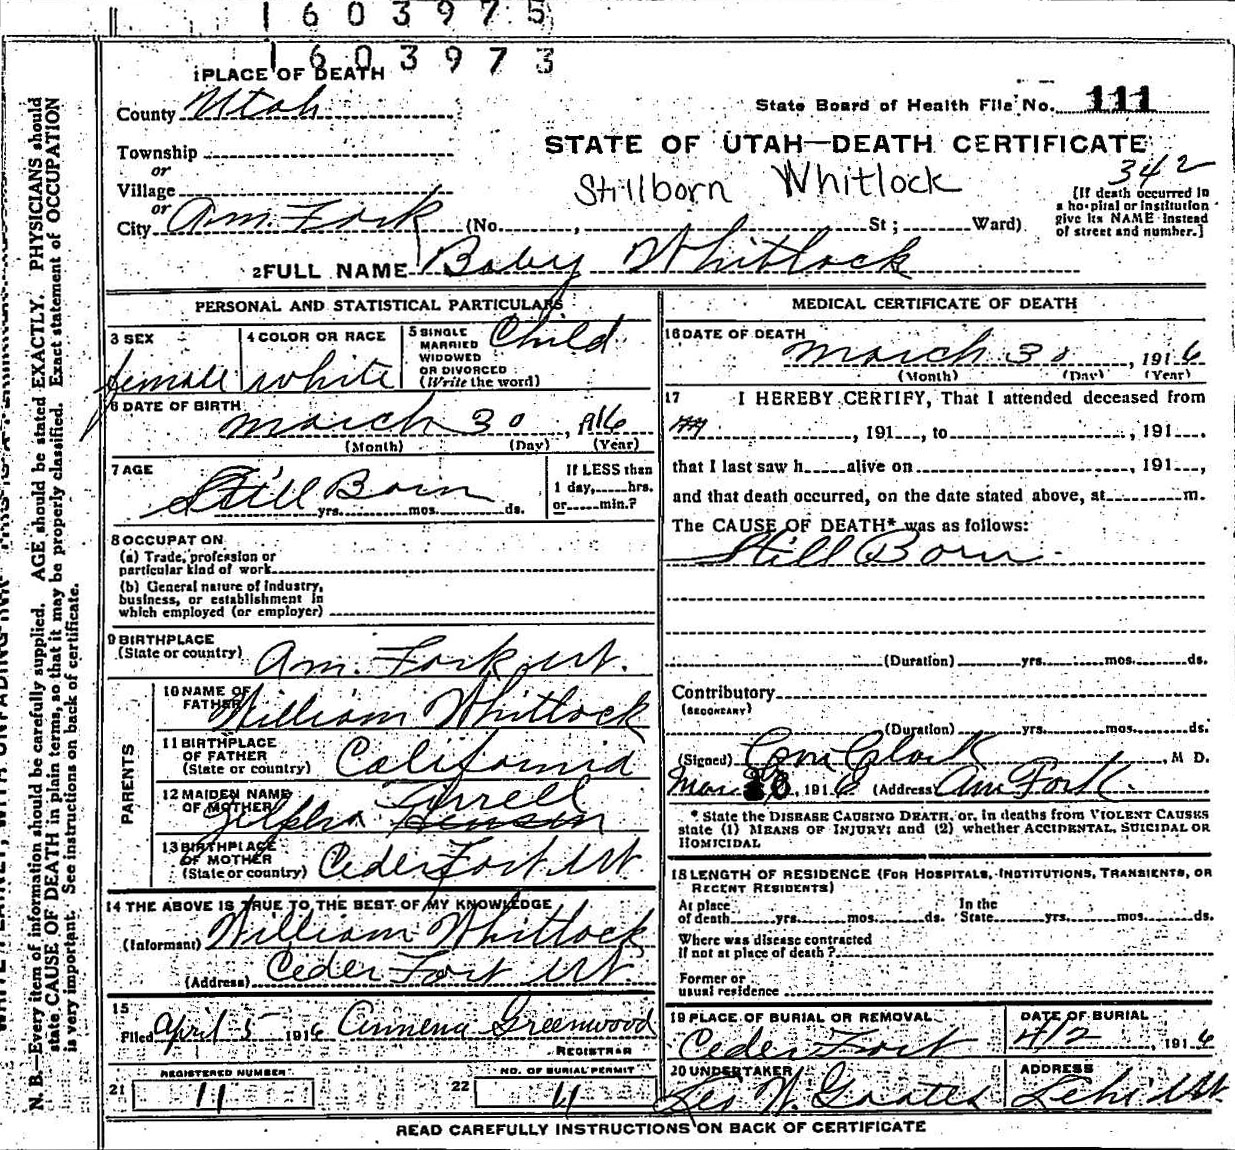 1603975
1603973
1 PLACE OF DEATH
County Utah
State Board of Health File No. 111
STATE OF UTAH—DEATH CERTIFICATE
Township
or
Village
or
City Am. Fork (No. , St; Ward)
Stillborn Whitlock
342
[If death occurred in a hospital or institution give its NAME instead of street and number.]
2 FULL NAME Baby Whitlock
PERSONAL AND STATISTICAL PARTICULARS
3 SEX female
4 COLOR OR RACE white
5 SINGLE MARRIED WIDOWED OR DIVORCED (Write the word) Child
6 DATE OF BIRTH march 30, 1916
(Month) (Day) (Year)
7 AGE Still Born
yrs. mos. ds.
If LESS than 1 day, hrs. or min.?
8 OCCUPATION
(a) Trade, profession or particular kind of work
(b) General nature of industry, business, or establishment in which employed (or employer)
9 BIRTHPLACE (State or country) Am. Fork ut.
PARENTS
10 NAME OF FATHER William Whitlock
11 BIRTHPLACE OF FATHER (State or country) California
12 MAIDEN NAME OF MOTHER Zilpha
13 BIRTHPLACE OF MOTHER (State or country) Ceder Fort Ut
14 THE ABOVE IS TRUE TO THE BEST OF MY KNOWLEDGE
(Informant) William Whitlock
(Address) Ceder Fort Ut
15 Filed April 5 1916 Greenwood
REGISTRAR
21 REGISTERED NUMBER 11
22 NO. OF BURIAL PERMIT 11
MEDICAL CERTIFICATE OF DEATH
16 DATE OF DEATH march 30, 1916
(Month) (Day) (Year)
17 I HEREBY CERTIFY, That I attended deceased from
, 191 , to , 191 .
that I last saw h alive on , 191 ,
and that death occurred, on the date stated above, at m.
The CAUSE OF DEATH* was as follows:
Still Born
(Duration) yrs. mos. ds.
Contributory
(SECONDARY)
(Duration) yrs. mos. ds.
(Signed) Clark, M D.
Mar 30, 1916 (Address) Am Fork.
* State the DISEASE CAUSING DEATH, or, in deaths from VIOLENT CAUSES
state (1) MEANS OF INJURY; and (2) whether ACCIDENTAL, SUICIDAL OR
HOMICIDAL
18 LENGTH OF RESIDENCE (FOR HOSPITALS, INSTITUTIONS, TRANSIENTS, OR RECENT RESIDENTS)
At place of death yrs. mos. ds. In the State yrs. mos. ds.
Where was disease contracted if not at place of death?
Former or usual residence
19 PLACE OF BURIAL OR REMOVAL Ceder Fort
DATE OF BURIAL 4/2, 1916
20 UNDERTAKER Geo W. Goates
ADDRESS Lehi Ut
READ CAREFULLY INSTRUCTIONS ON BACK OF CERTIFICATE
N. B.—Every item of information should be carefully supplied. AGE should be stated EXACTLY. PHYSICIANS should
state CAUSE OF DEATH in plain terms, so that it may be properly classified. Exact statement of OCCUPATION
is very important. See instructions on back of certificate.